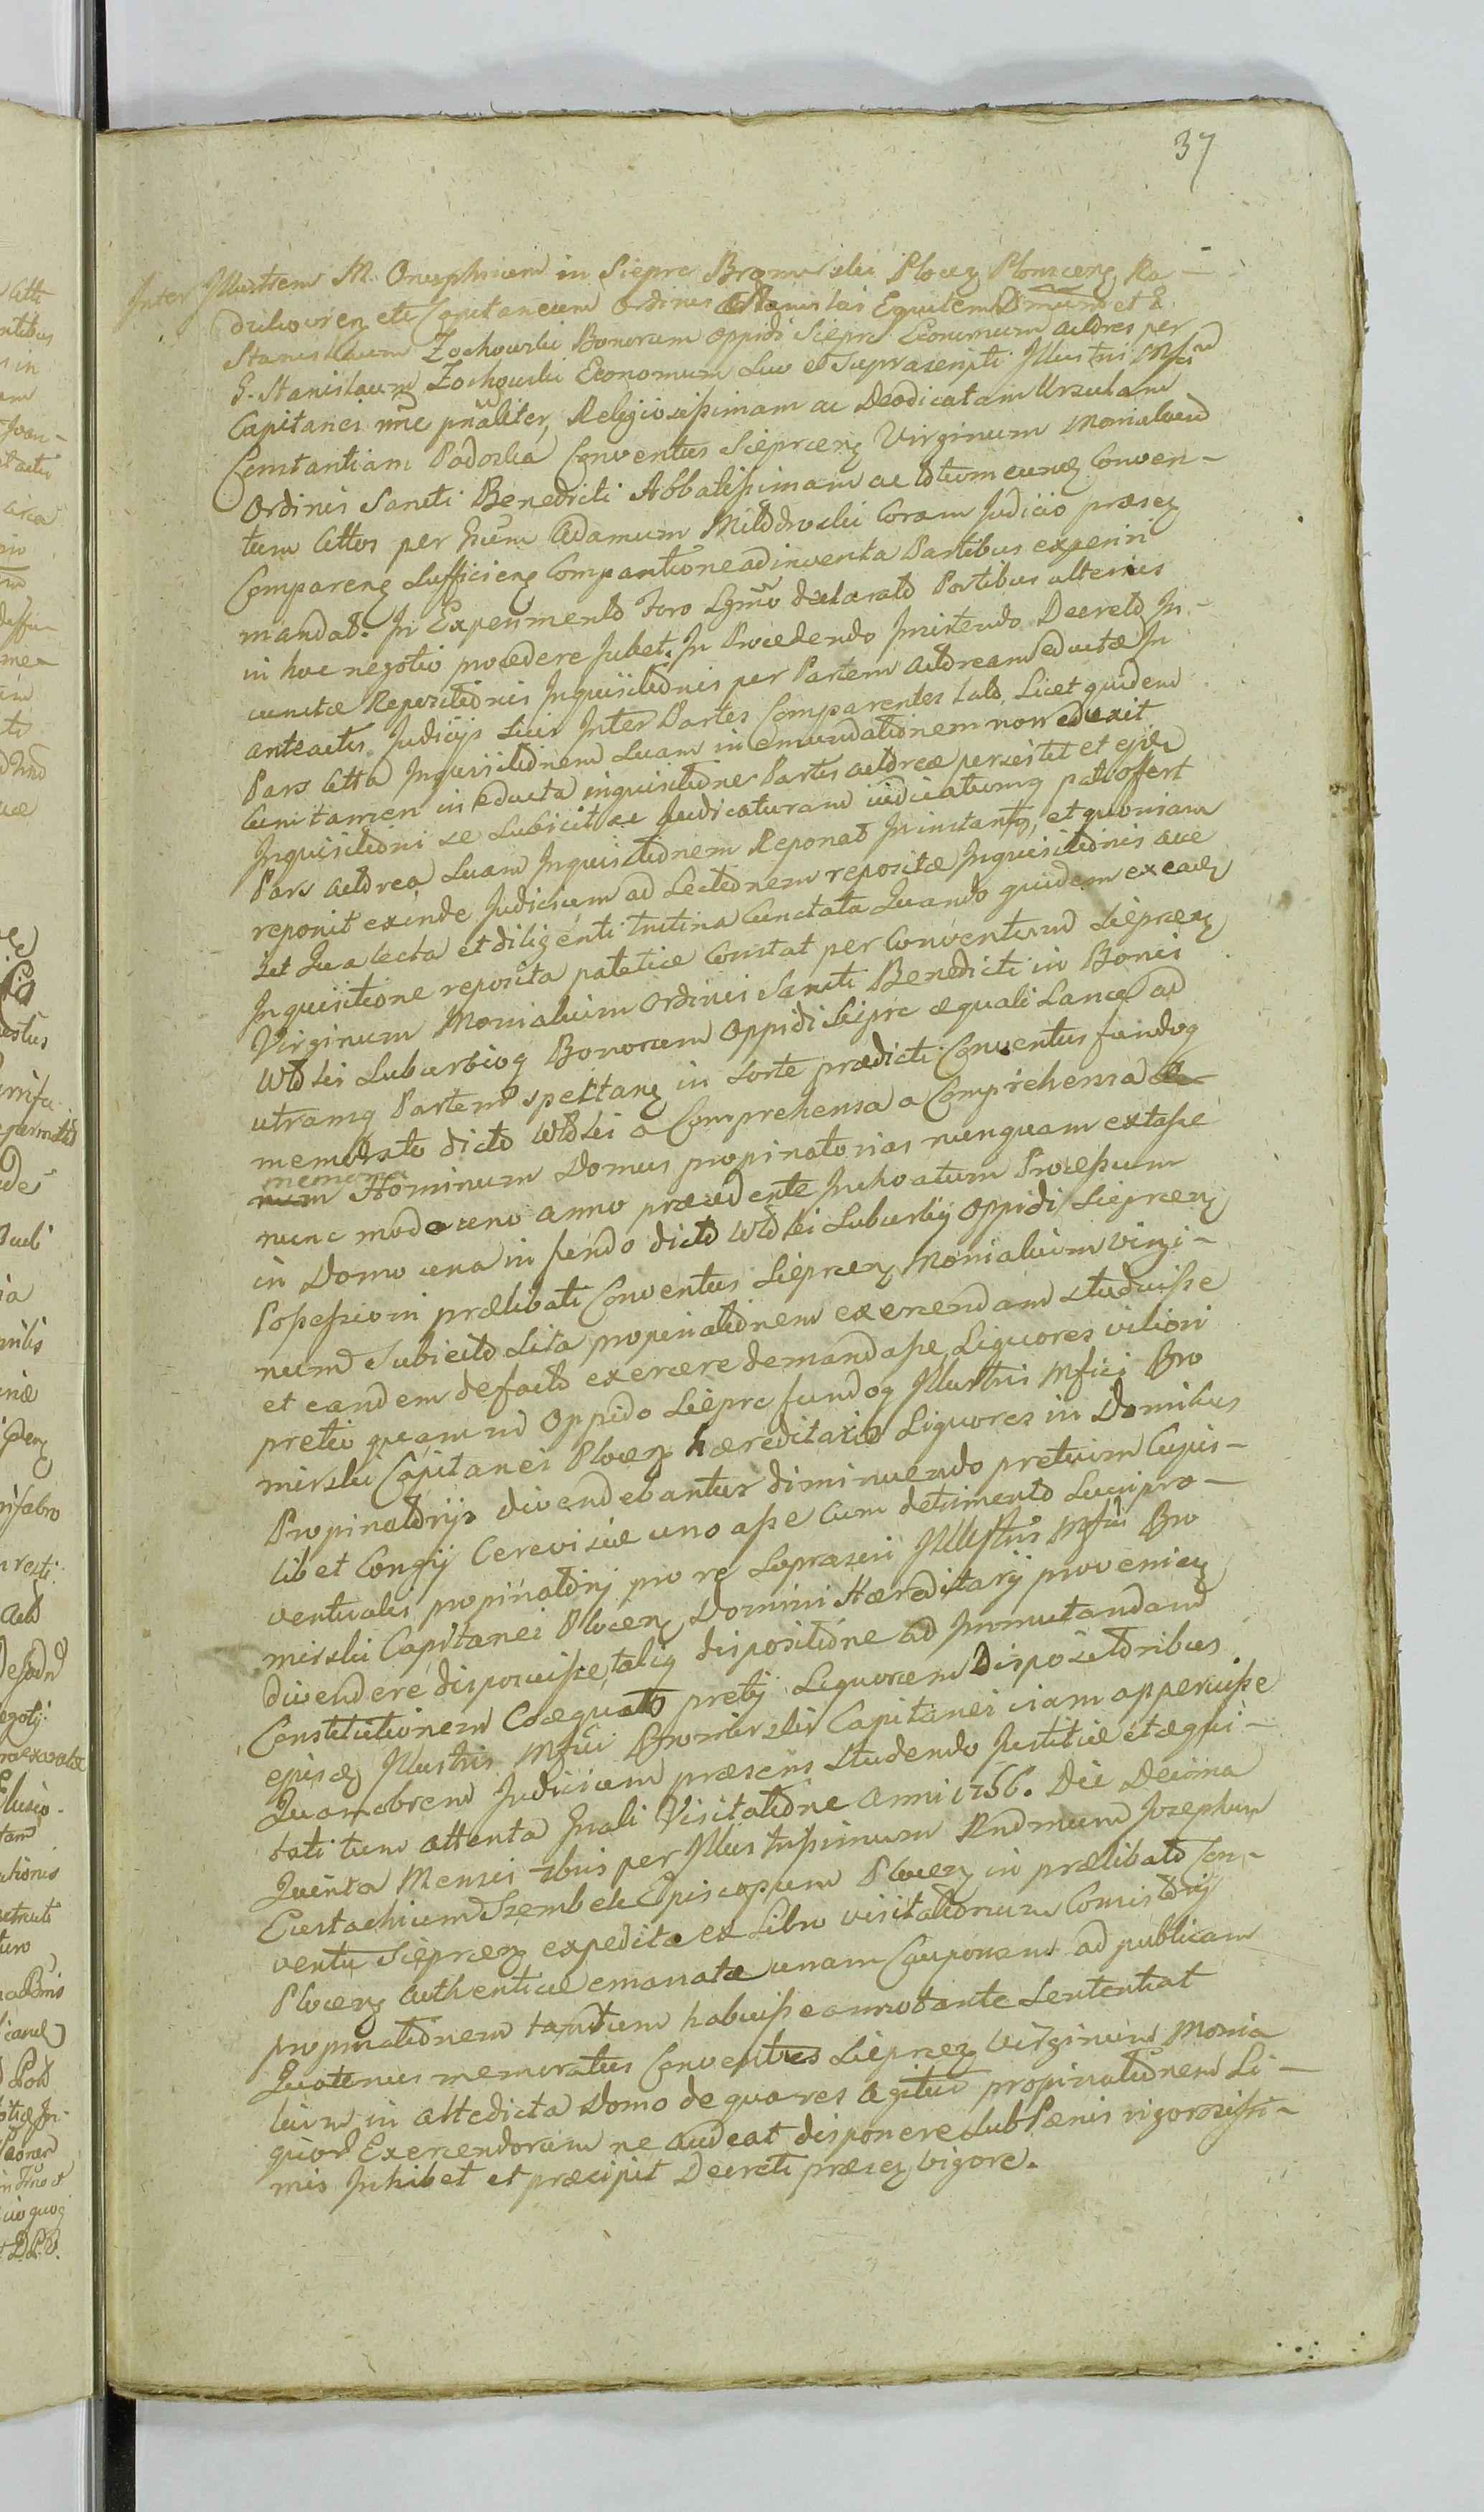 37
Inter Illustrem M. Onuphrium in Sieprc Bromirski Plocen Plonscen Ra-
duhovien etc Capitaneum Ordinis S Stanislai Equitem Dnum et G
Stanislaum Zochowski Bonorum oppidi Sieprc Economum actores per
G. Stanislaum Zochowski Economum suo et suprascripti Illustris Mfici
Capitanei nne pnaliter, Religiosissimam ac Deodicatam Ursulam
Constantiam Podoska Conventus Sieprcen Virginum Monialium
Ordinis Sancti Benedicti Abbatissimam ac totum eunq Conven-
tum Cttos per Gsum Adamum Coram Judicio præsen
Comparen Sufficien Compantione adinventa Partibus experiri
mandat. In Experimento Foro Lgmo declarato Partibus alterius
in hoc negotio procedere Jubet. In Procedendo Insistendo Decreto In-
cunctæ Repositionis Inquisitionis per Partem actoream eductæ In
anteactis Judicijs Suis Inter Partes Comparentes lato Licet quidem
Pars Ctta Inquisitionem Suam in emundationem non eduxit
Cum tamen in educta inquisitione Partis actoreæ persistit et ejus
Inquisitioni se subicit ac Judicaturam judicatumq pati offert
Pars actorea Suam Inquisitionem Reponat In instanti, et quoniam
reponit exinde Judicium ad Lectionem repositæ Inquisitionis acce
dit Qua lecta et diligenti trutina Cunctata Quando quidem ex eadem
Inquisitione reposita patetice Constat per Conventum Sieprcen
Virginum Monialium Ordinis Sancti Benedicti in Bonis
Wtoski Suburbioq Bonorum oppidi Sieprc æquali Lance ad
utramq Partem spectan in Sorte prædicti Conventus fundoq
memorato dicto Wtoski a Comprehensa a Comprehensa
memoria
num Hominum Domus propinatorias nunquam extasse
nunc modo uno anno præcedente Inchoatum Processum
in Domo una in fundo dicto Wtoski Suburbij Oppidi Sieprcen
Possessioni prælibati Conventus Sieprcen Monialium Virgi-
num Subiecto Sita propinationem exercendam studuisse
et eandem defacto exercere demandasse, Liquores viliori
pretio quam in Oppido Sieprc fundoq Illustris Mfici Bro
mirski Capitanei Plocen hæreditario Liquores in Domibus
Propinatorijs divendebantur diminuendo pretium Cujus-
libet Congij Cerevisiæ uno asse Cum detrimento Lucri pro-
ventualis propinatorij pro re Suprascri Illustris Mfici Bro
mirski Capitanei Plocen Domini Hæreditarij provenien
divendere disposuisse, taliq dispositione ad Immutandam
Constitutionem Coæquato pretij Liquorem Dispositoribus
ejusq Illustris Mfici Bromirski Capitanei viam apperuisse
Quamobrem Judicium præsens studendo Justitiæ et æqui-
tati tum attenta Inali Visitatione Anni 1766. Die Decima
Quinta Mensis Xbris per Illustrissimum Rndmum Josephum
Eustachium Szembek Episcopum Plocen in prælibato Con-
ventu Sieprcen expedita ex Libro visitationum Comistorij
Plocen authenticæ emanatæ unam Cauponam ad publicam
propinationem tantum habuisse annotante Sententiat
Quatenus memoratus Conventus Sieprcen Virginum Monia
lium in attedicta Domo de qua res agitur propinationem Li-
quor Exercendorum ne audeat disponere Sub Pænis rigorosissi-
mis Inhibet et præcipit Decreti præsen vigore.